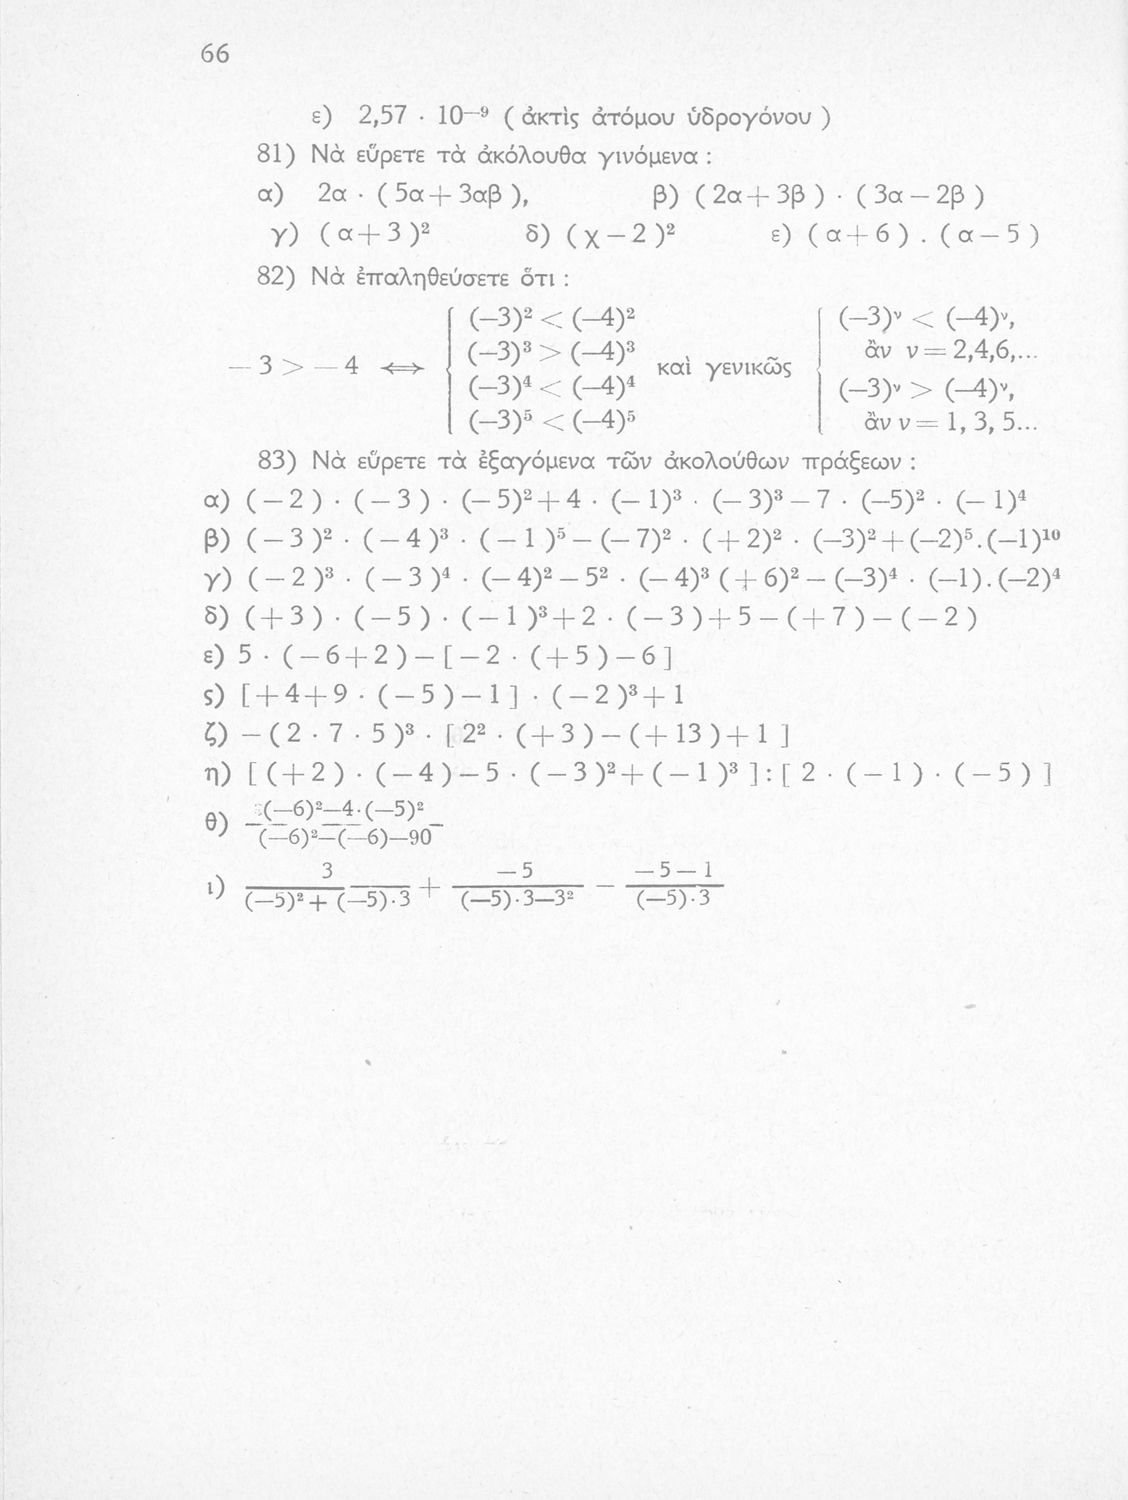 66
ε) 2,57 · 10—⁹ ( ἀκτὶς ἀτόμου ὑδρογόνου )
81) Νὰ εὕρετε τὰ ἀκόλουθα γινόμενα :
α) 2α · ( 5α + 3αβ ), β) ( 2α + 3β ) · ( 3α — 2β )
γ) ( α + 3 )² δ) ( χ — 2 )² ε) ( α + 6 ) . ( α — 5 )
82) Νὰ ἐπαληθεύσετε ὅτι :
— 3 > — 4 ⟺ { (—3)² < (—4)²
(—3)³ > (—4)³
(—3)⁴ < (—4)⁴
(—3)⁵ < (—4)⁵
καὶ γενικῶς { (—3)ᵛ < (—4)ᵛ,
ἂν ν = 2,4,6,...
(—3)ᵛ > (—4)ᵛ,
ἂν ν = 1, 3, 5...
83) Νὰ εὕρετε τὰ ἐξαγόμενα τῶν ἀκολούθων πράξεων :
α) ( — 2 ) · ( — 3 ) · (— 5)² + 4 · (— 1)³ · (— 3)³ — 7 · (—5)² · (— 1)⁴
β) ( — 3 )² · ( — 4 )³ · ( — 1 )⁵ — (— 7)² · (+ 2)² · (—3)² + (—2)⁵.(—1)¹⁰
γ) ( — 2 )³ · ( — 3 )⁴ · (— 4)² — 5² · (— 4)³ (+ 6)² — (—3)⁴ · (—1).(—2)⁴
δ) ( + 3 ) · ( — 5 ) · ( — 1 )³ + 2 · ( — 3 ) + 5 — ( + 7 ) — ( — 2 )
ε) 5 · ( — 6 + 2 ) — [ — 2 · ( + 5 ) — 6 ]
ς) [ + 4 + 9 · ( — 5 ) — 1 ] · ( — 2 )³ + 1
ζ) — ( 2 · 7 · 5 )³ · [ 2² · ( + 3 ) — ( + 13 ) + 1 ]
η) [ ( + 2 ) · ( — 4 ) — 5 · ( — 3 )² + ( — 1 )³ ] : [ 2 · ( — 1 ) · ( — 5 ) ]
(—6)²—4·(—5)²
θ)
(—6)²—(—6)—90
3 —5 —5—1
ι) + —
(—5)²+ (—5)·3 (—5)·3—3² (—5)·3